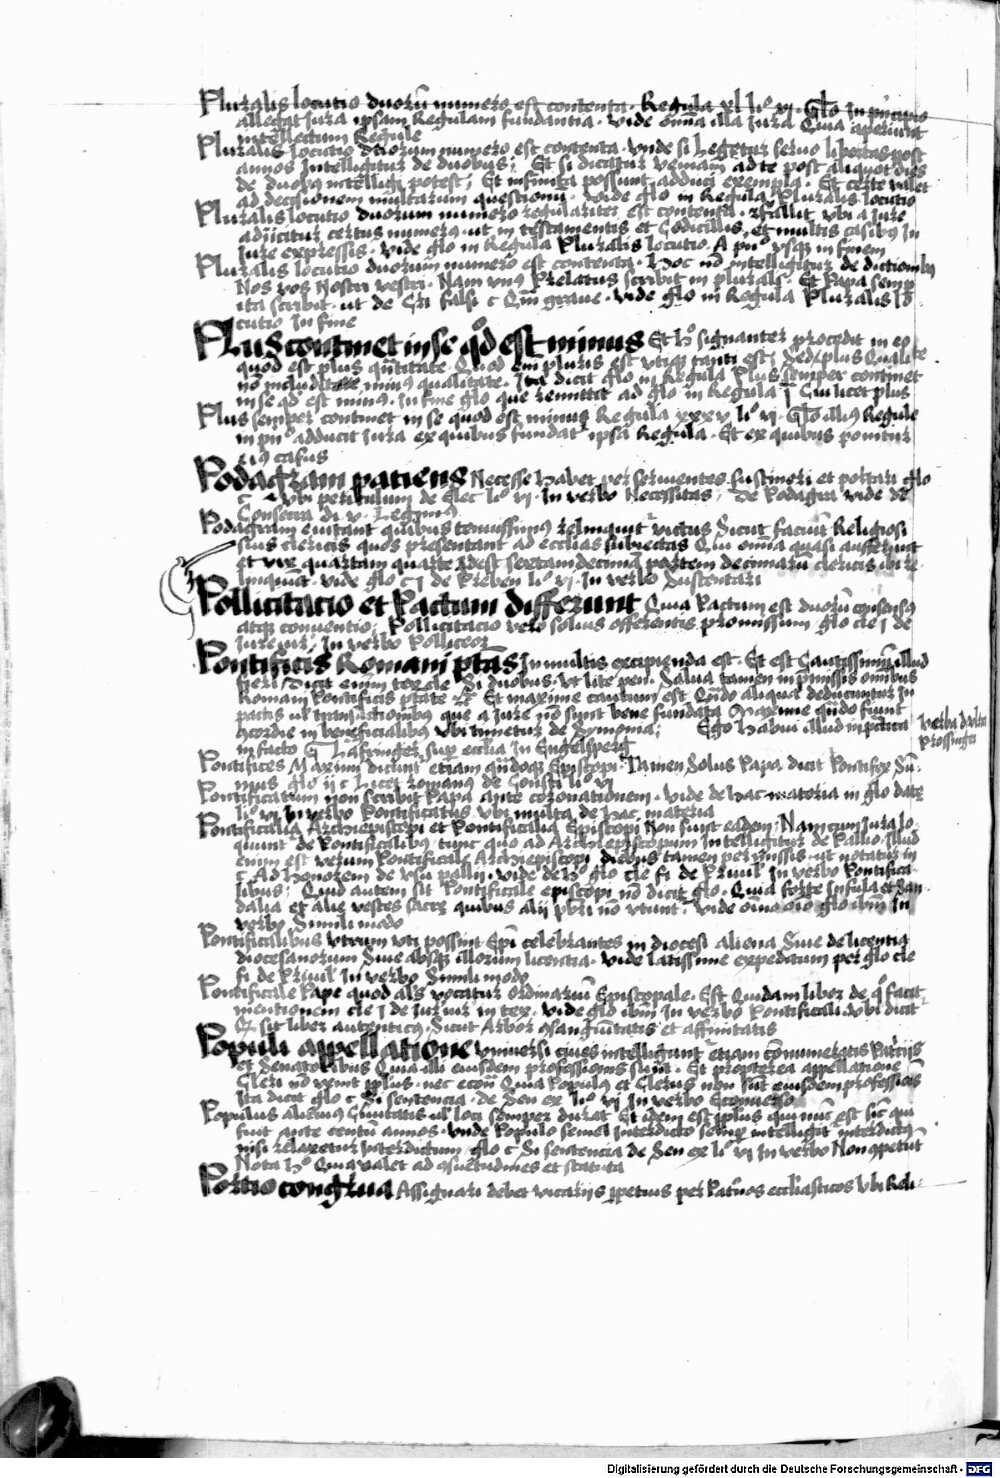 Pluralis locutio duorū numero est contenta. Regula xl li° vi. Glo In principio
allegat Jura ipsam Regulam fundantia. Vide omīa illa Jura Quia aperiunt
intellectum Regule
Pluralis locutio duorum numero est contenta. Vnde si Legetur seruo libertas post
annos Intelligitur de duobus; Et si dicatur veniam ad te post aliquot dies
de duobus intelligi potest; Et infinita possunt adduci exempla. Et certe valet
ad decisionem multarum questionū. Vide glo in Regula Pluralis locutio
Pluralis locutio duorum numero regulariter est contenta. fallit vbi a Jure
adijcitur certus numerus. ut in testamentis et Codicillis, et multis casibus In
Jure expressis. Vide glo in Regula Pluralis locutio. A pn° vsqz in finem
Pluralis locutio duorum numero est contenta. Hoc nō intelligitur de dictionibus
Nos vos Nostri vestri. Nam vnus Prelatus scribit in plurali. Et Papa semp
ita scribit. ut de Cri falsi c Qm̄ graue. Vide glo in Regula Pluralis lo
cutio In fine
Plus continet in se qd est minus Et h° signanter procedit in eo
quod est plus qn̄titate. Quod em̄ pluris est vtiqz tanti est; Sed plus Qualitate
nō includit minus qualitate. Ita dicit glo in Regula Plus semper continet
in se qd est minus. In fine glo que remittit ad glo in Regula Cui licet plus
Plus semper continet in se quod est minus Regula xxxv li° vi. Glo illius Regule
in pn° adducit Jura ex quibus fundat ipsā Regula. Et ex quibus ponitur
eius casus
Podagram patiens Necesse habet per seruientes sustineri et portari glo
c Vbi periculum de Elec li° vi. In verbo Necessitas; De Podagra vide de
Consecra di v. Legimus
Podagram euitant quibus tenuissimus relinquit victus Sicut faciūt Religiosi
suis clericis quos presentant ad ecclias subiectas Qui omīa quasi aufferunt
et vix quartam quarte Idest sextamdecimā partem decimarū clericis ibi re-
linquūt. Vide glo c j de Preben li° vi. In verbo Sustentari
Pollicitatio et Pactum differunt Quia Pactum est duorū consensus
atqz conuentio; Pollicitacio vero solius offerentis promissum glo cle j de
Jureiur; In verbo Polliceor
Pontificis Romani ptās In multis excipienda est. Et est Cautissimū illud
fieri Dicit enim tex cle Si duobus. Vt lite pen. Salua tamen in pmissis omībus
Romani Pontificis ptate &c Et maxime cautum est Qn̄do aliqua deducuntur In
pactis ul transactionibus que a Jure nō sunt bene fundata Maxime qn̄do fiunt
in beneficialibus vbi timetur de Symonia; Ego habui illud in pctica
in facto G Hafringer sup ecclia In Engelsperg
verba d
Pontifices Maximi dicunt etiam qn̄doqz Episcopi. Tamen Solus Papa dicit Pontifex Sū-
mus glo ij c Licet romanus de Consti li° vi
Pontificatum non scribit Papa ante coronationem. Vide de hac materia in glo
li° vi In verbo Pontificatus Vbi multa de hac materia
Pontificalia Archiepiscopi et Pontificalia Episcopi Non sunt eadem; Nam cum Jura lo-
quunt de Pontificalibus, tunc quo ad Archiepiscopum Intelligitur de Pallio. Illud
enim est verum Pontificale Archiepiscopi diebus tamen permissis. ut notatur in
c Ad honorem de vsu pallij. Vide de h° glo cle fi de Priuil In verbo Pontifica-
libus; Quid autem sit Pontificale episcopi nō dicit glo. Quia forte Infula et San-
dalia et alie vestes sacre quibus alij pbri nō vtunt. Vide omīno glo ibm̄ In
verbo Simili modo
Pontificalibus Vtrum vti possint Epī celebrantes in diocesi aliena Siue de licentia
diocesanorum Siue absqz illorum licentia. Vide latissime expeditum per glo cle
fi de Priuil In verbo Simili modo
Pontificale Pape quod als vocatur Ordinariū Episcopale. Est Quidam liber de q° facit
mentionem cle j de Jureiur in tex. Vide glo ibm̄ In verbo Pontificali. Vbi dicit
q sit liber autenticus, Sicut Arbor consanguīitatis et affinitatis
Populi appellatione Vniuersi ciues intelligunt etiam cōnumeratis Patrijs
et Senatoribus Quia illi eiusdem professionis sunt. Et propterea appellatione
Cleri nō venit pplus. nec econ̄ Quia Populus et Clerus non sūt eiusdem professionis
Ita dicit glo c Si sentencia. de Sen ex li° vi In verbo Econuerso
Populus alicuius Ciuitatis ul loci semper durat Et idem est pplus qui nūc est sic qui
fuit ante centū annos. Vnde Populo semel Interdicto semp intelligit Interdictus
nisi relaxetur Interdictum. glo c Si sentencia de Sen ex li° vi In verbo Non competūt
Nota h° Quia valet ad consuetudines et statuta
Portio congrua Assignari debet vicarijs ppetuis per Patronos eccliasticos Vbi Reli-
Digitalisierung gefördert durch die Deutsche Forschungsgemeinschaft - DFG